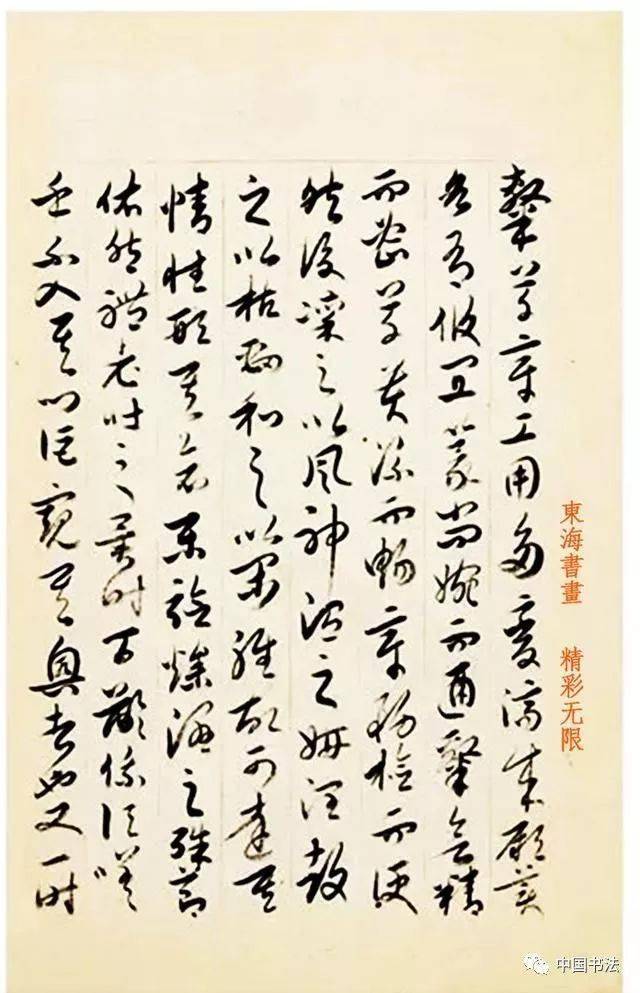 隸草章工用多變濟成厥美
各有攸宜篆尚婉而通隸欲精
而密草貴流而暢章務檢而便
然後凜之以風神溫之妍潤鼓
之以枯勁和之以閑雅故可達其
情性形其哀樂驗燥濕之殊節
依然體老壯之異時百齡俄頃嗟
乎不入其門詎窺其奧者也又一時
東海書畫 精彩无限
中国书法